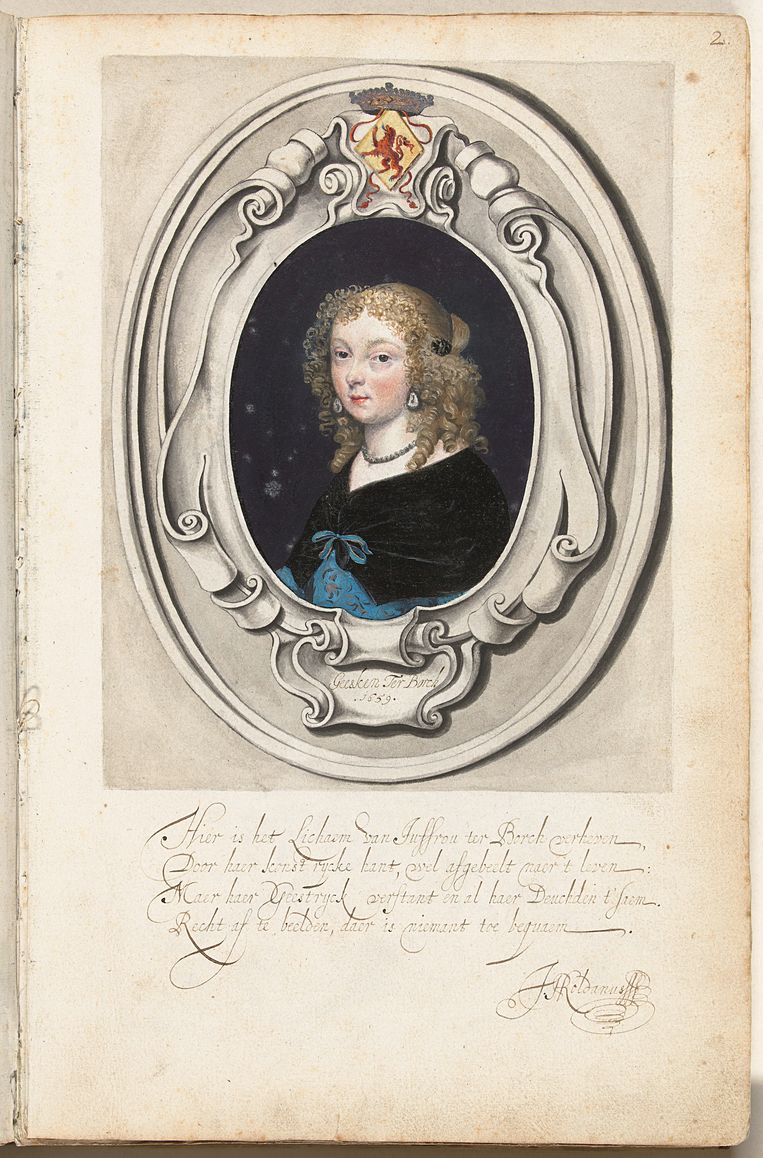 2.
Geesken Ter Borch
.1659.
Hier is het Lichaem van Juffrou ter Borch verheven,
Door haer konst rycke hant, wel afgebeelt naer't leven:
Maer haer Geestryck verstant en al haer Deuchden t'saem.
Recht af te beelden, daer is niemant toe bequaem.
JRoldanus